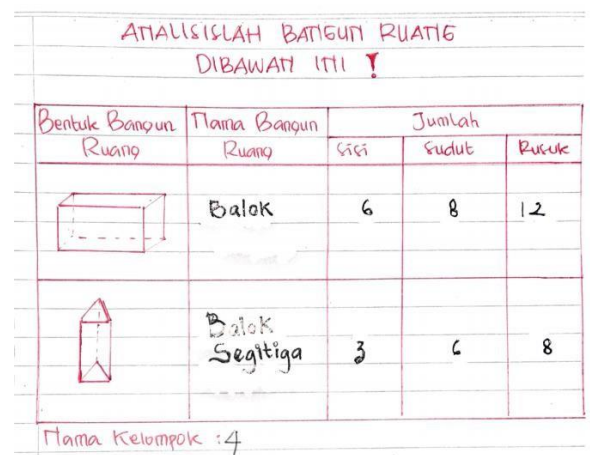 ANALISISLAH BANGUN RUANG
DIBAWAH INI !
Bentuk Bangun Ruang
Nama Bangun Ruang
Jumlah
Sisi
Sudut
Rusuk
Balok 6 8 12
Balok
Segitiga 3 6 8
Nama Kelompok : 4